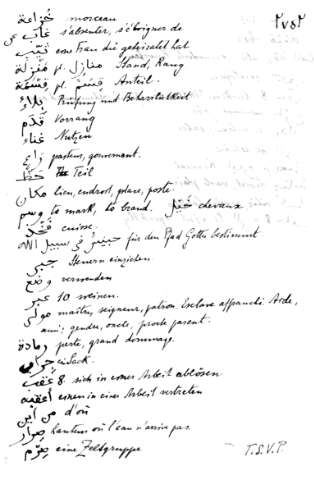 ٢٧٥٢
خزاعة morceau
غاب عن s'absenter, s'éloigner de
eine Frau die geheiratet hat
منزلة pl. منازل Stand, Rang
قسمة pl. قسم Anteil.
بلاء Prüfung und Beharrlichkeit
قدم Vorrang
غناء Nutzen
راعي pasteur, gouvernant.
حظ Teil
مكان lieu, endroit, place, poste
وسم to mark, to brand. خيل chevaux
فخذ cuisse.
حبيس في سبيل الله für den Pfad Gottes bestimmt
جبى Steuern einziehen.
وضع verwenden
عبر 10 weinen.
مولى maître, seigneur, patron. Esclave affranchi. Aide,
ami; gendre, oncle, proche parent.
رمادة perte, grand dommage.
جراب ein Sack.
عقب 8 sich in einer Arbeit ablösen
أعقبه einen in einer Arbeit vertreten
من أين d'où
hauteur où l'eau n'arrive pas
صرم eine Zeltgruppe
T.S.V.P.